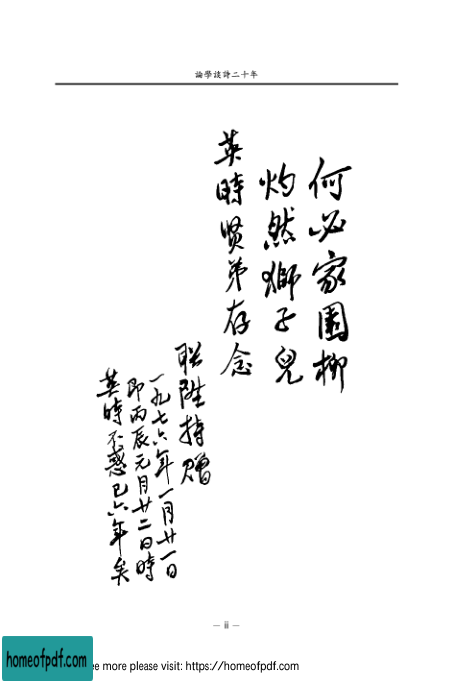 論學談詩二十年
何必家園柳
灼然獅子兒
英時賢弟存念
聯陞持贈
一九七六年一月廿一日
即丙辰元月廿二日時
英時不惑已六年矣
— ii —
homeofpdf.com
ee more please visit: https://homeofpdf.com